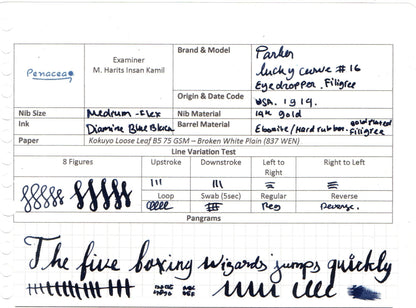 Penacea
Examiner
M. Harits Insan Kamil
Brand & Model
Parker
lucky curve # 16
Eyedropper. Filigree
Origin & Date Code
USA. 1919.
Nib Size
Medium - flex
Nib Material
14k gold
Ink
Diamine Blue Black
Barrel Material
Ebonite/Hard rubber. gold plated
Filigree
Paper
Kokuyo Loose Leaf B5 75 GSM – Broken White Plain (837 WEN)
Line Variation Test
8 Figures
Upstroke
Downstroke
Left to Right
Right to Left
Loop
Swab (5sec)
Regular
Reverse
Reg
Reverse.
Pangrams
The five boxing wizards jumps quickly